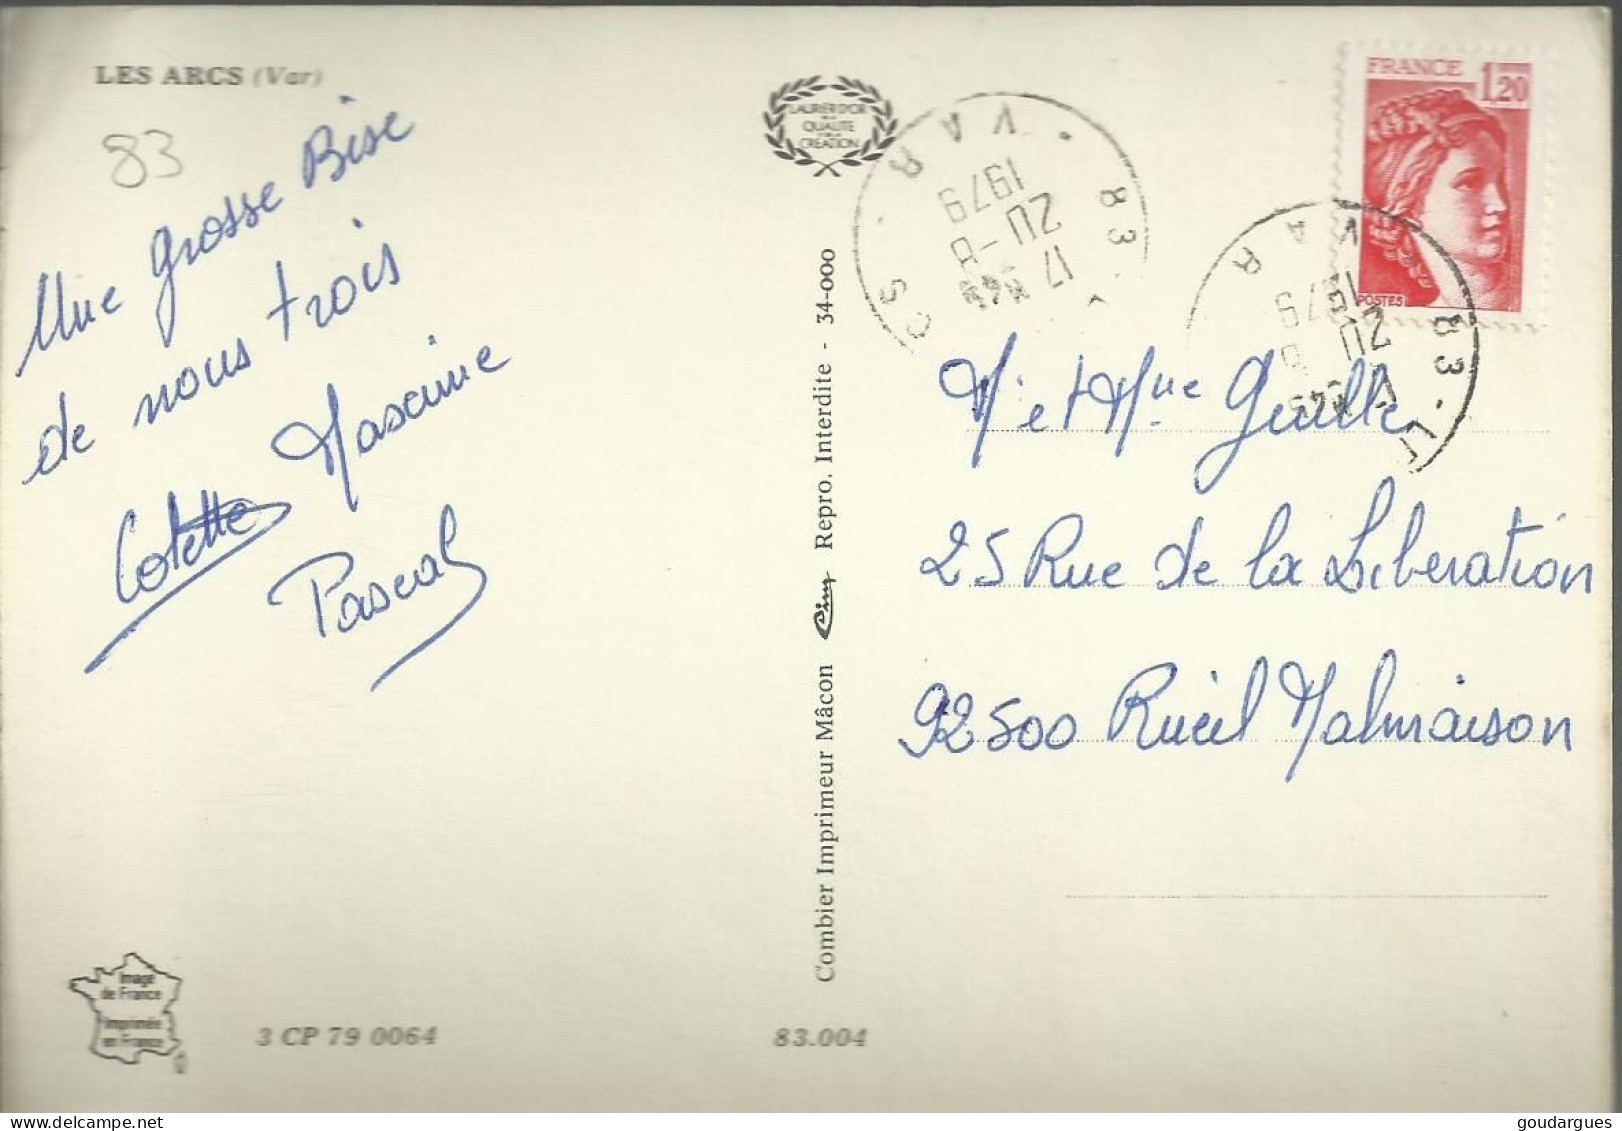 LES ARCS (Var)
83
Une grosse Bise
de nous trois
Maxime
Colette
Pascal
LAURIER D'OR
DE LA
QUALITE
ET DE LA
CREATION
Combier Imprimeur Mâcon Cim Repro. Interdite - 34-000
FRANCE 1,20
POSTES
VAR
83
17
20-8
1979
VAR
83
1979
Mr et Mme Guille
25 Rue de la Libération
92500 Rueil Malmaison
Image
de France
Imprimée
en France
3 CP 79 0064
83.004
goudargues@delcampe.net